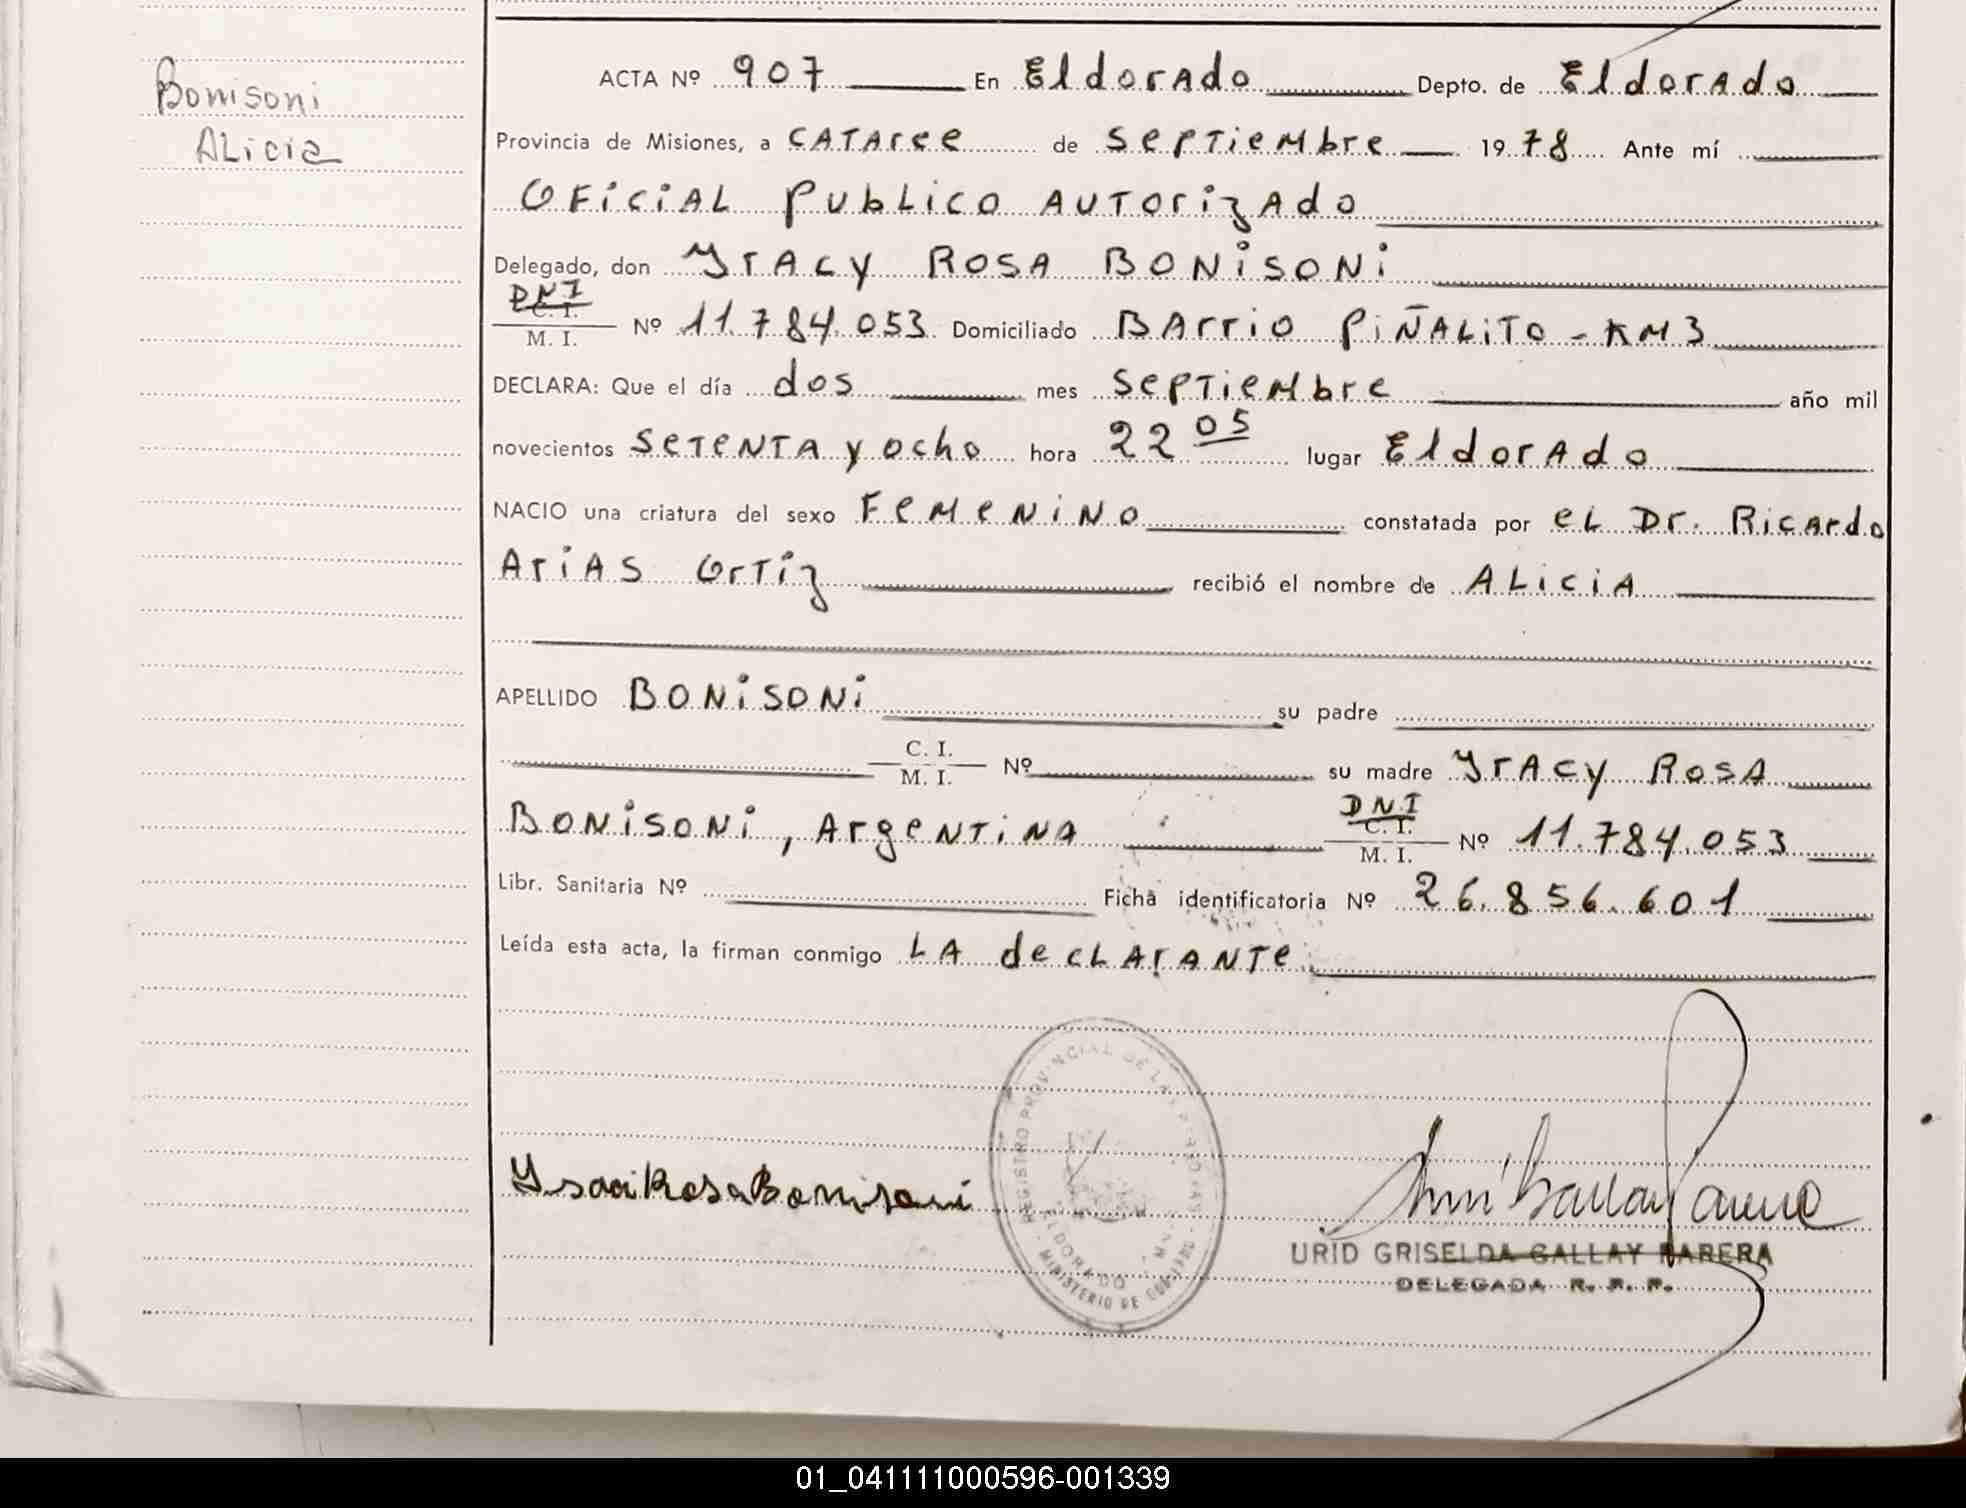 Bonisoni
ALicia
ACTA Nº 907 En Eldorado Depto. de Eldorado
Provincia de Misiones, a CATArce de Septiembre 1978 Ante mí
OFiciAL PubLico AUTorizAdo
Delegado, don YrACy ROSA BONiSONi
DNI
C. I.
M. I. Nº 11.784.053 Domiciliado BArrio PiÑALiTo - KM3
DECLARA: Que el día dos mes SepTieMbre año mil
novecientos SeTeNTA y ocho hora 22 05 lugar EldorAdo
NACIO una criatura del sexo FeMeNiNo constatada por eL Dr. RicArdo
AriAS OrTiz recibió el nombre de ALiciA
APELLIDO BONiSONi su padre
C. I.
M. I. Nº su madre YrACy ROSA
BONiSONi, ArgeNTiNA DNI
C. I.
M. I. Nº 11.784.053
Libr. Sanitaria Nº Ficha identificatoria Nº 26.856.601
Leída esta acta, la firman conmigo LA decLArANTe
REGISTRO PROVINCIAL DE LAS PERSONAS
ELDORADO
MINISTERIO DE
Rosa Bonisoni
URID GRISELDA GALLAY PARERA
DELEGADA R. P. P.
01_041111000596-001339